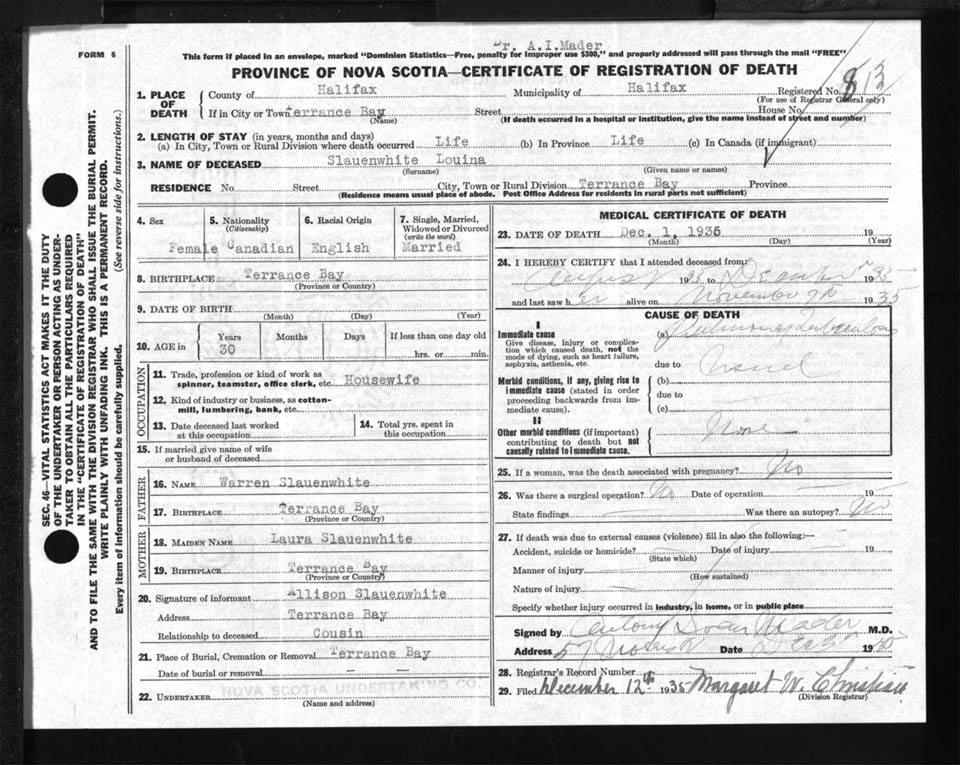 Dr. A.I.Mader
FORM 6
This form if placed in an envelope, marked "Dominion Statistics—Free, penalty for improper use $300," and properly addressed will pass through the mail "FREE"
PROVINCE OF NOVA SCOTIA—CERTIFICATE OF REGISTRATION OF DEATH
813
1. PLACE OF DEATH
County of Halifax Municipality of Halifax Registered No.
(For use of Registrar General only)
If in City or Town Terrance Bay Street House No.
(Name) (If death occurred in a hospital or institution, give the name instead of street and number)
2. LENGTH OF STAY (in years, months and days)
(a) In City, Town or Rural Division where death occurred Life (b) In Province Life (c) In Canada (if immigrant)
3. NAME OF DECEASED Slauenwhite Louina
(Surname) (Given name or names)
RESIDENCE No. Street City, Town or Rural Division Terrance Bay Province
(Residence means usual place of abode. Post Office Address for residents in rural parts not sufficient)
SEC. 46—VITAL STATISTICS ACT MAKES IT THE DUTY
OF THE UNDERTAKER OR PERSON ACTING AS UNDER-
TAKER TO OBTAIN ALL THE PARTICULARS REQUIRED
IN THE "CERTIFICATE OF REGISTRATION OF DEATH"
AND TO FILE THE SAME WITH THE DIVISION REGISTRAR WHO SHALL ISSUE THE BURIAL PERMIT.
WRITE PLAINLY WITH UNFADING INK. THIS IS A PERMANENT RECORD.
Every item of information should be carefully supplied. (See reverse side for instructions.)
4. Sex
Female
5. Nationality
(Citizenship)
Canadian
6. Racial Origin
English
7. Single, Married,
Widowed or Divorced
(write the word)
Married
8. BIRTHPLACE Terrance Bay
(Province or Country)
9. DATE OF BIRTH
(Month) (Day) (Year)
10. AGE in
Years
30
Months
Days
If less than one day old
hrs. or min.
OCCUPATION
11. Trade, profession or kind of work as
spinner, teamster, office clerk, etc. Housewife
12. Kind of industry or business, as cotton-
mill, lumbering, bank, etc.
13. Date deceased last worked
at this occupation
14. Total yrs. spent in
this occupation
15. If married give name of wife
or husband of deceased
FATHER
16. NAME Warren Slauenwhite
17. BIRTHPLACE Terrance Bay
(Province or Country)
MOTHER
18. MAIDEN NAME Laura Slauenwhite
19. BIRTHPLACE Terrance Bay
(Province or Country)
20. Signature of informant Allison Slauenwhite
Address Terrance Bay
Relationship to deceased Cousin
21. Place of Burial, Cremation or Removal Terrance Bay
Date of burial or removal
NOVA SCOTIA UNDERTAKING CO.
22. UNDERTAKER
(Name and address)
MEDICAL CERTIFICATE OF DEATH
23. DATE OF DEATH Dec. 1, 1935 19
(Month) (Day) (Year)
24. I HEREBY CERTIFY that I attended deceased from:
August 1935 to December 1st 1935
and last saw her alive on November 9th 1935
CAUSE OF DEATH
I
Immediate cause
Give disease, injury or complica-
tion which caused death, not the
mode of dying, such as heart failure,
asphyxia, asthenia, etc.
(a) Pulmonary Tuberculosis
due to
Morbid conditions, if any, giving rise to
immediate cause (stated in order
proceeding backwards from im-
mediate cause).
(b)
due to
(c)
II
Other morbid conditions (if important)
contributing to death but not
causally related to immediate cause.
None
25. If a woman, was the death associated with pregnancy? No
26. Was there a surgical operation? No Date of operation 19
State findings Was there an autopsy? No
27. If death was due to external causes (violence) fill in also the following:—
Accident, suicide or homicide? Date of injury 19
(State which)
Manner of injury
(How sustained)
Nature of injury
Specify whether injury occurred in industry, in home, or in public place
Signed by Antony Ivan Mader M.D.
Address 57 Morris St Date Dec 5th 1935
28. Registrar's Record Number
29. Filed December 12th 1935 Margaret W. Christian
(Division Registrar)